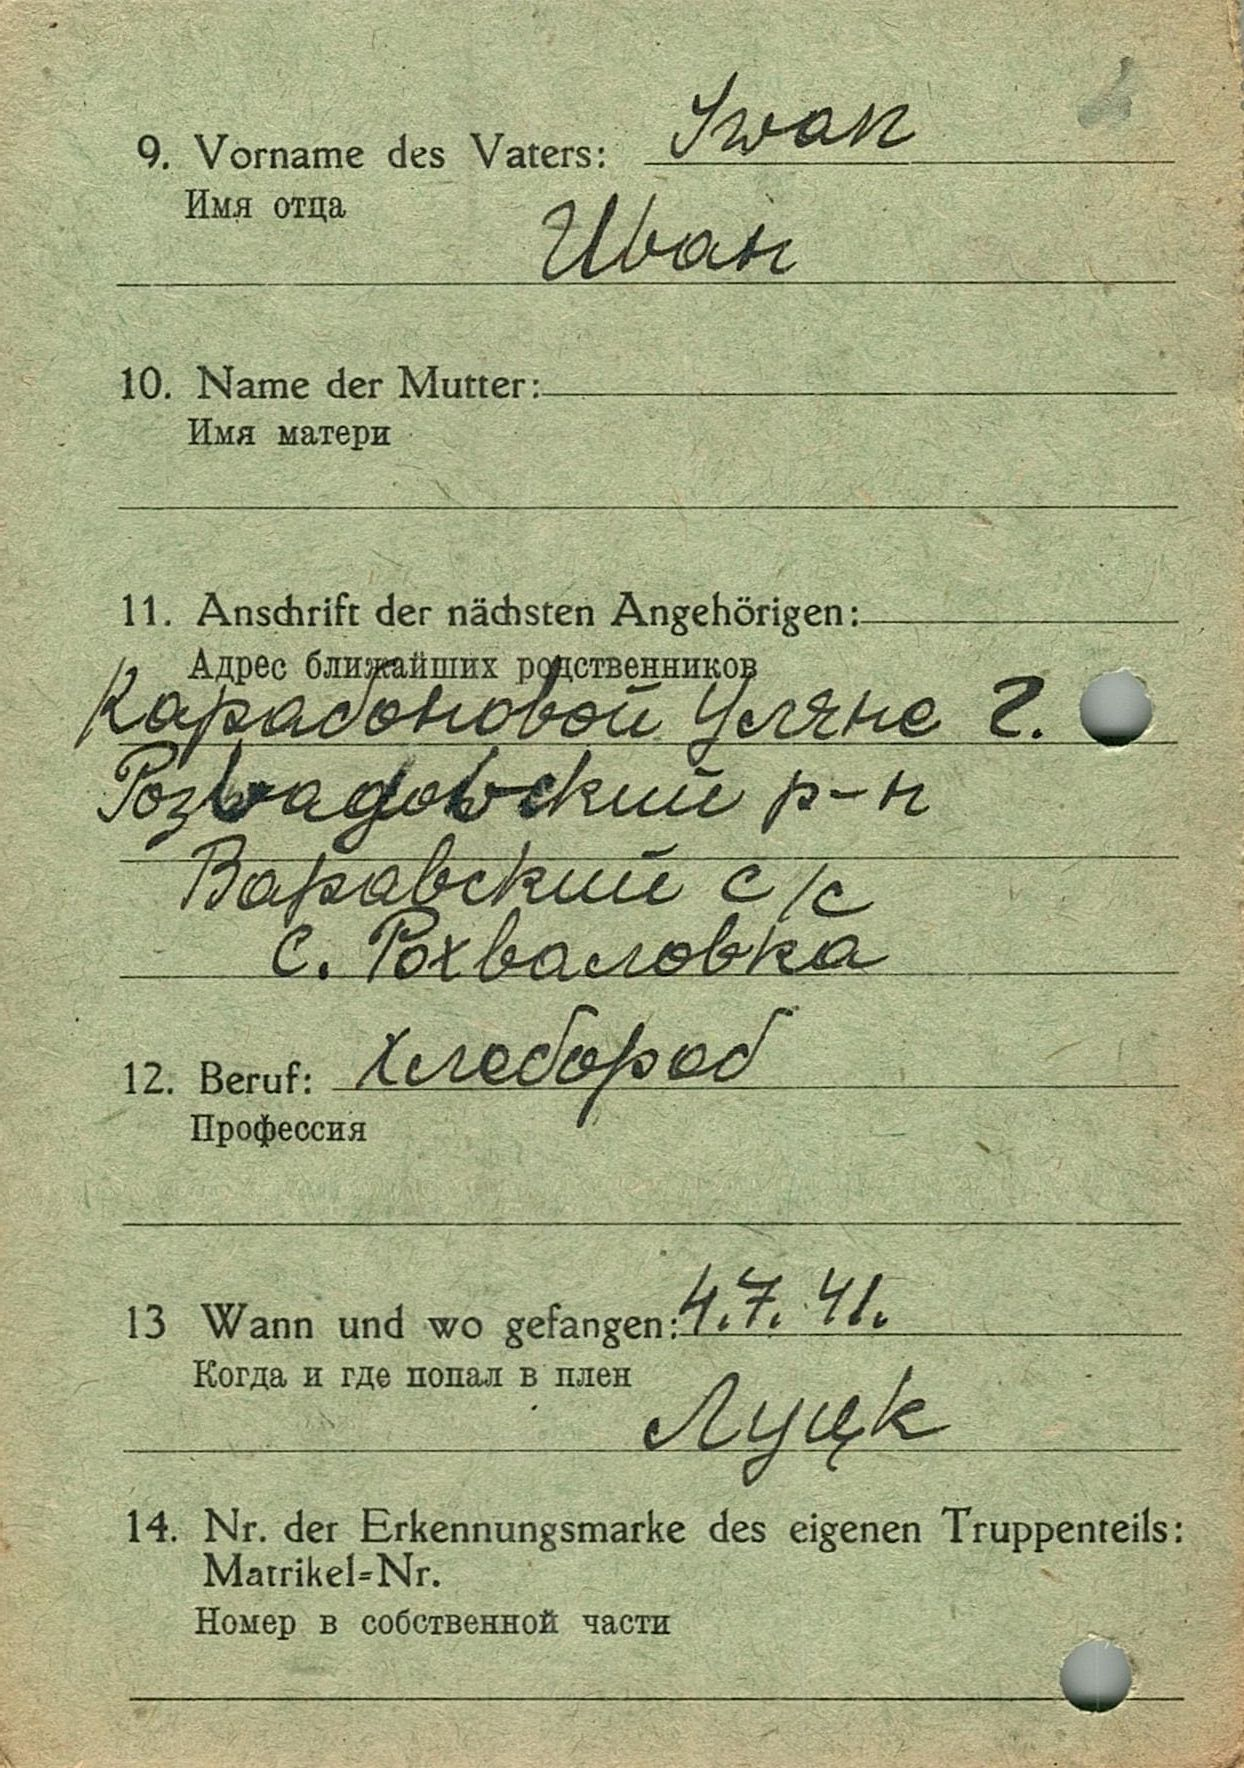 9. Vorname des Vaters: Iwan
Имя отца
Иван
10. Name der Mutter:
Имя матери
11. Anschrift der nächsten Angehörigen:
Адрес ближайших родственников
Карабоновой Уляне Г.
Розвадовский р-н
Варавский с/с
с. Рохваловка
12. Beruf: хлебороб
Профессия
13 Wann und wo gefangen: 4.7.41.
Когда и где попал в плен
Луцк
14. Nr. der Erkennungsmarke des eigenen Truppenteils:
Matrikel-Nr.
Номер в собственной части